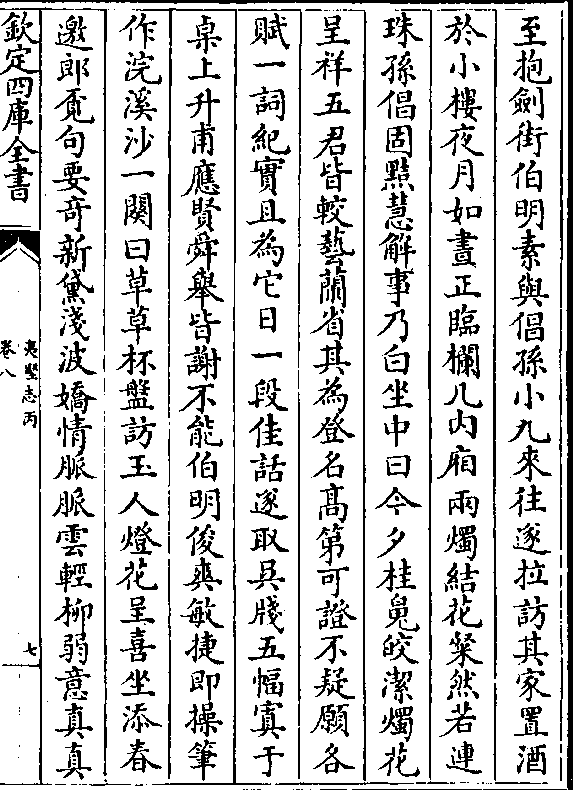 至抱劍街伯明素與倡孫小九來往遂拉訪其家置酒
於小樓夜月如晝正臨欄几内廂兩燭結花粲然若連
珠孫倡固黠慧解事乃白坐中曰今夕桂魄皎潔燭花
呈祥五君皆較藝蘭省其為登名高第可證不疑願各
賦一詞紀實且為它日一段佳話遂取吳牋五幅寘于
桌上升甫應賢舜舉皆謝不能伯明俊爽敏捷即操筆
作浣溪沙一闋曰草草杯盤訪玉人燈花呈喜坐添春
邀郎覓句要奇新黛淺波嬌情脈脈雲輕柳弱意真真
欽定四庫全書
夷堅志丙
卷八
七